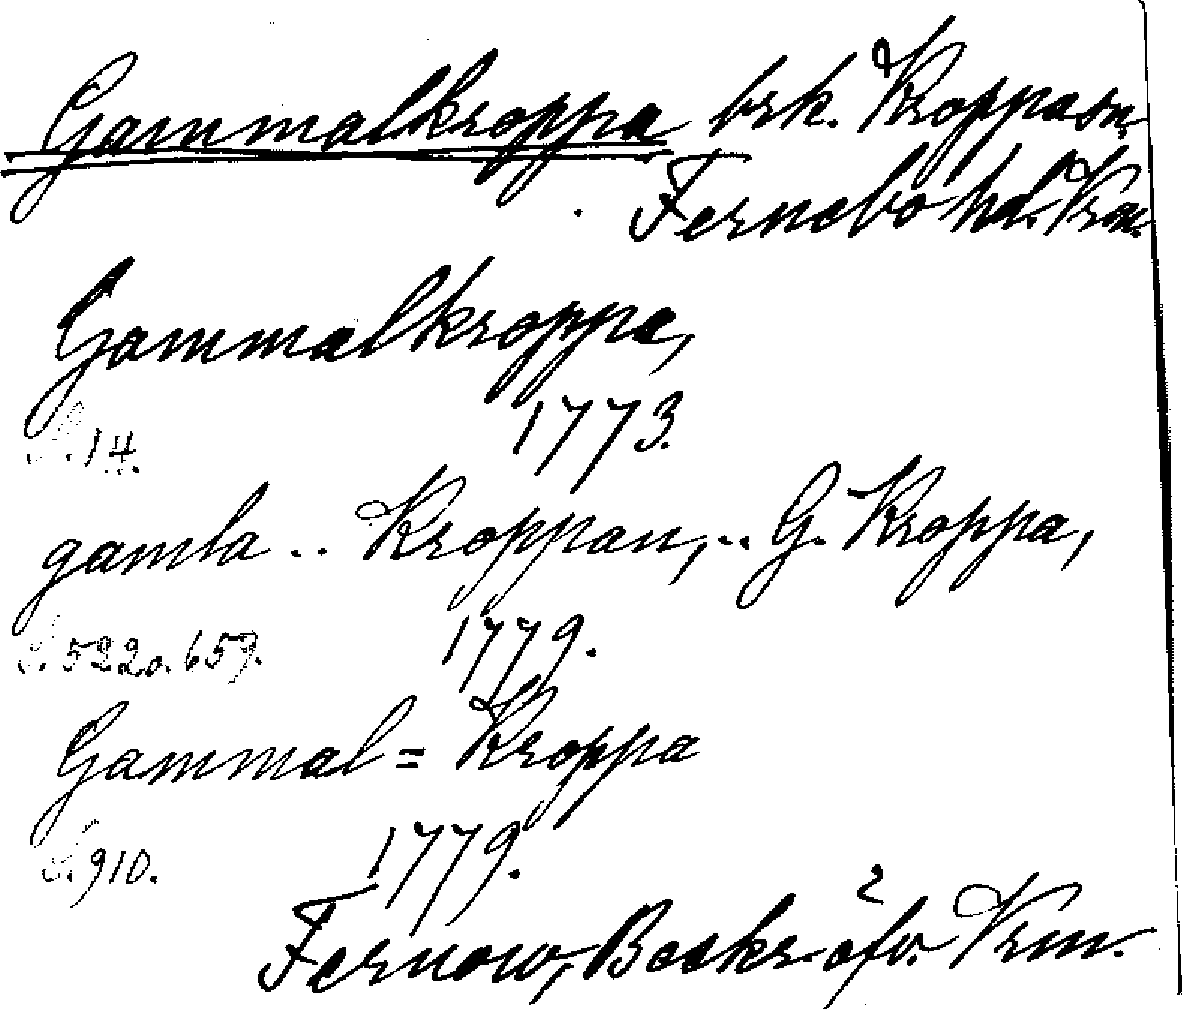 Gammalkroppa brk. Kroppa sn.
Fernebo hd. Vrm.
Gammalkroppa,
S. 14. 1773.
gamla .. Kroppan, .. G. Kroppa,
S. 522 o. 659. 1779.
Gammal = Kroppa
S. 910. 1779.
Fernow, Beskr. öfv. Vrm.